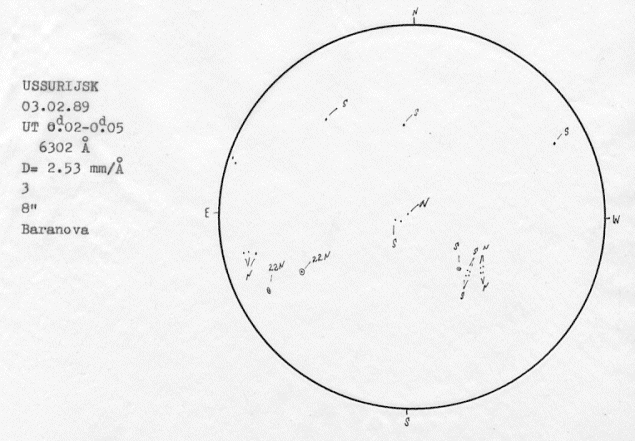 N
USSURIJSK
03.02.89
UT 0ᵈ.02-0ᵈ.05
6302 Å
D= 2.53 mm/Å
3
8"
Baranova
S
S
S
E
W
N
S
S
S
N
22N
22N
N
S
N
S